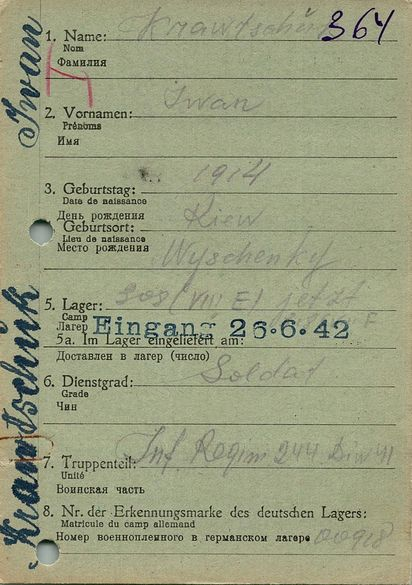 Krawtschuk Iwan
364
1. Name: Krawtschuk
Nom
Фамилия
2. Vornamen: Iwan
Prénoms
Имя
3. Geburtstag: 1914
Date de naissance
День рождения
Geburtsort: Kiew
Lieu de naissance
Место рождения Wyschenky
5. Lager: 308 (VIII E) jetzt
Camp
Лагерь
Eingang 26.6.42
5a. Im Lager eingeliefert am:
Доставлен в лагерь (число)
6. Dienstgrad: Soldat
Grade
Чин
7. Truppenteil: Inf. Regim 244 Div 41
Unité
Воинская часть
8. Nr. der Erkennungsmarke des deutschen Lagers:
Matricule du camp allemand
Номер военнопленного в германском лагере 00918